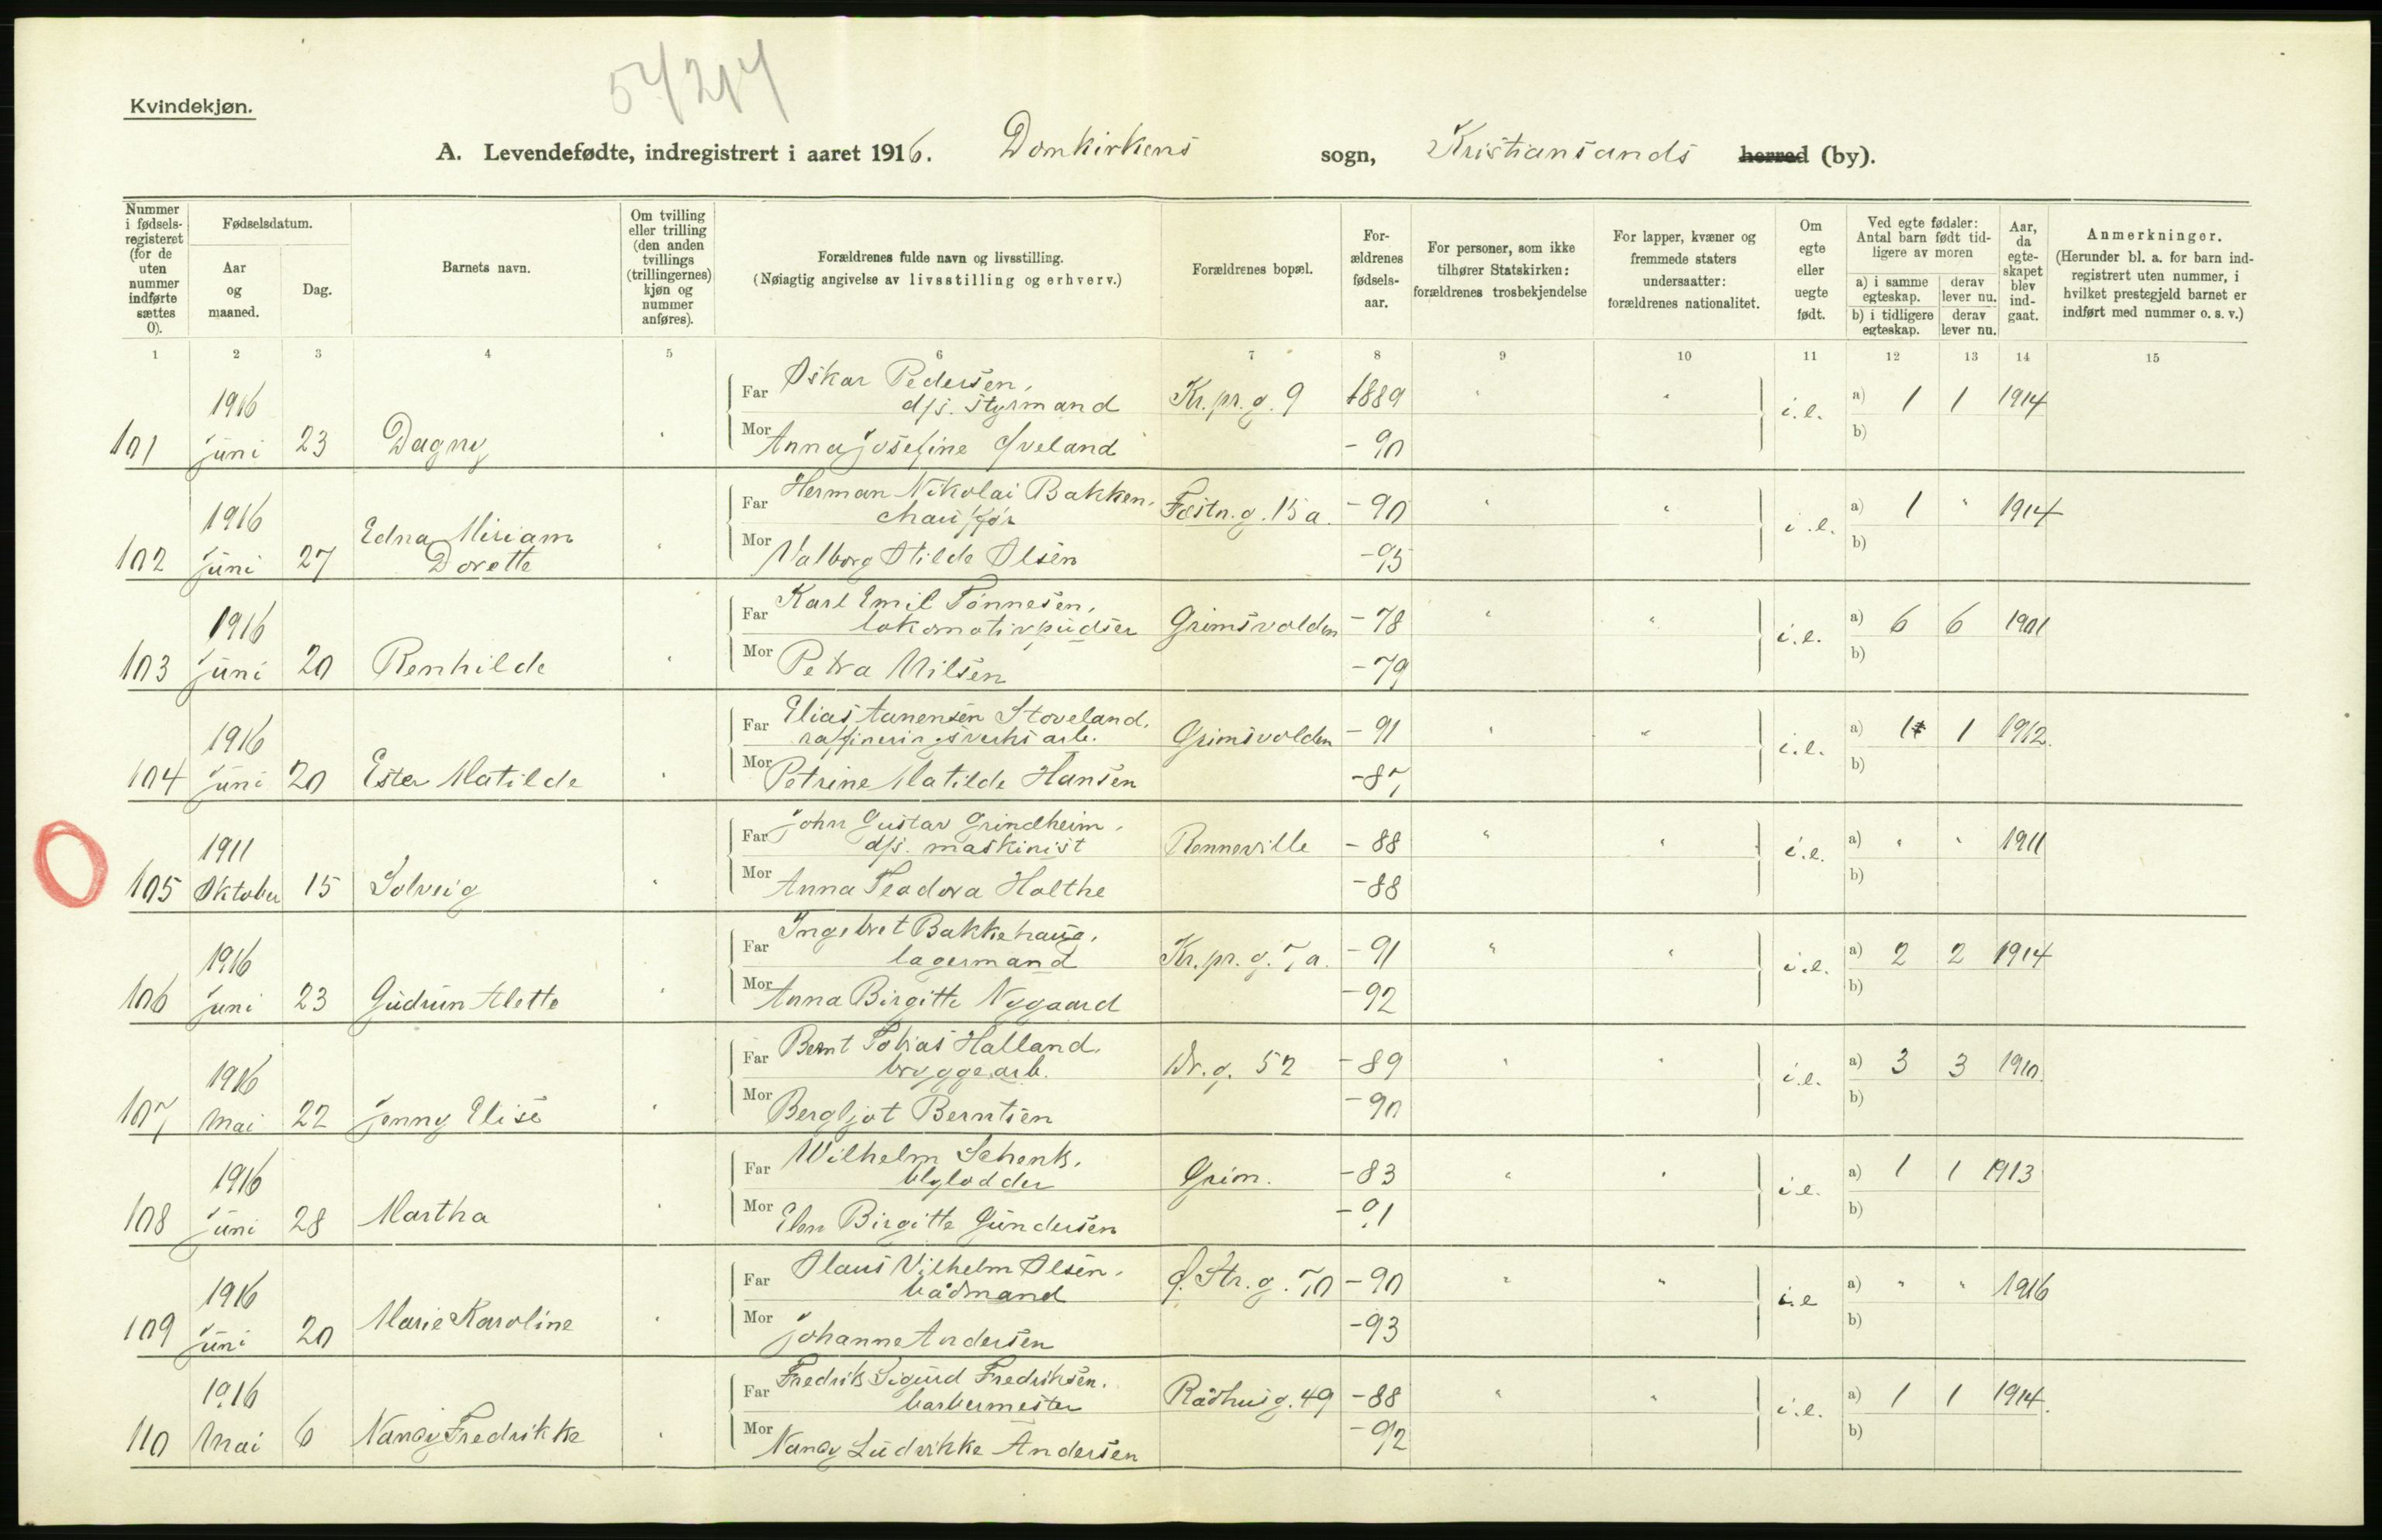 Kvindekjøn.
54/214
A. Levendefødte, indregistrert i aaret 1916. Domkirkens sogn, Kristiansands herred (by).
Nummer i fødselsregisteret (for de uten nummer indførte sættes 0).
Fødselsdatum.
Aar og maaned.
Dag.
Barnets navn.
Om tvilling eller trilling (den anden tvillings (trillingernes) kjøn og nummer anføres).
Forældrenes fulde navn og livsstilling.
(Nøiagtig angivelse av livsstilling og erhverv.)
Forældrenes bopæl.
Forældrenes fødselsaar.
For personer, som ikke tilhører Statskirken: forældrenes trosbekjendelse
For lapper, kvæner og fremmede staters undersaatter: forældrenes nationalitet.
Om egte eller uegte født.
Ved egte fødsler: Antal barn født tidligere av moren
a) i samme egteskap.
derav lever nu.
b) i tidligere egteskap.
derav lever nu.
Aar, da egteskapet blev indgaat.
Anmerkninger.
(Herunder bl. a. for barn indregistrert uten nummer, i hvilket prestegjeld barnet er indført med nummer o. s. v.)
1 2 3 4 5 6 7 8 9 10 11 12 13 14 15
Far Oskar Pedersen,
1916 d/s. styrmand Kr. pr. g. 9 1889 " " i.e. a) 1 1 1914
101 juni 23 Dagny " Mor Anna Josefine Sveland - 90 b)
Far Herman Nikolai Bakken,
1916 chaufför Fæstn. g. 15 a. - 90 " " i.e. a) 1 " 1914
Edna Miriam
102 juni 27 Dorette " Mor Valborg Otilde Olsen - 95 b)
Far Karl Emil Tønnesen,
1916 lokomotivpudser Grimsvolden - 78 " " i.e. a) 6 6 1901
103 juni 20 Renhilde " Mor Petra Nilsen - 79 b)
Far Elias Aanensen Stoveland,
1916 raffineringsverks arb. Grimsvolden - 91 " " i.e. a) 1 1 1912.
104 juni 20 Ester Matilde " Mor Petrine Matilde Hansen - 87 b)
Far John Gustav Grindheim,
1911 d/s. maskinist Renneville - 88 " " i.e. a) " " 1911
105 Oktober 15 Solveig " Mor Anna Teadora Holthe - 88 b)
Far Ingebret Bakkehaug,
1916 lagermand Kr. pr. g. 7 a. - 91 " " i.e. a) 2 2 1914
106 juni 23 Gudrun Alette " Mor Anna Birgitte Nygaard - 92 b)
Far Bernt Tobias Halland,
1916 bryggearb. Dr. g. 52 - 89 " " i.e. a) 3 3 1910.
107 Mai 22 Jenny Elise " Mor Bergljot Berntsen - 90 b)
Far Wilhelm Schenk,
1916 blylodder Grim. - 83 " " i.e. a) 1 1 1913
108 juni 28 Martha " Mor Elen Birgitte Gundersen - 91 b)
Far Olaus Vilhelm Olsen,
1916 bådmand Ø. Str. g. 70 - 90 " " i.e a) " " 1916
109 juni 20 Marie Karoline " Mor Johanne Andersen - 93 b)
Far Fredrik Sigurd Fredriksen,
1916 barbermester Rådhusg. 49 - 88 " " i.e. a) 1 1 1914.
110 Mai 6 Nandy Fredrikke " Mor Nandy Ludvikke Andersen - 92 b)